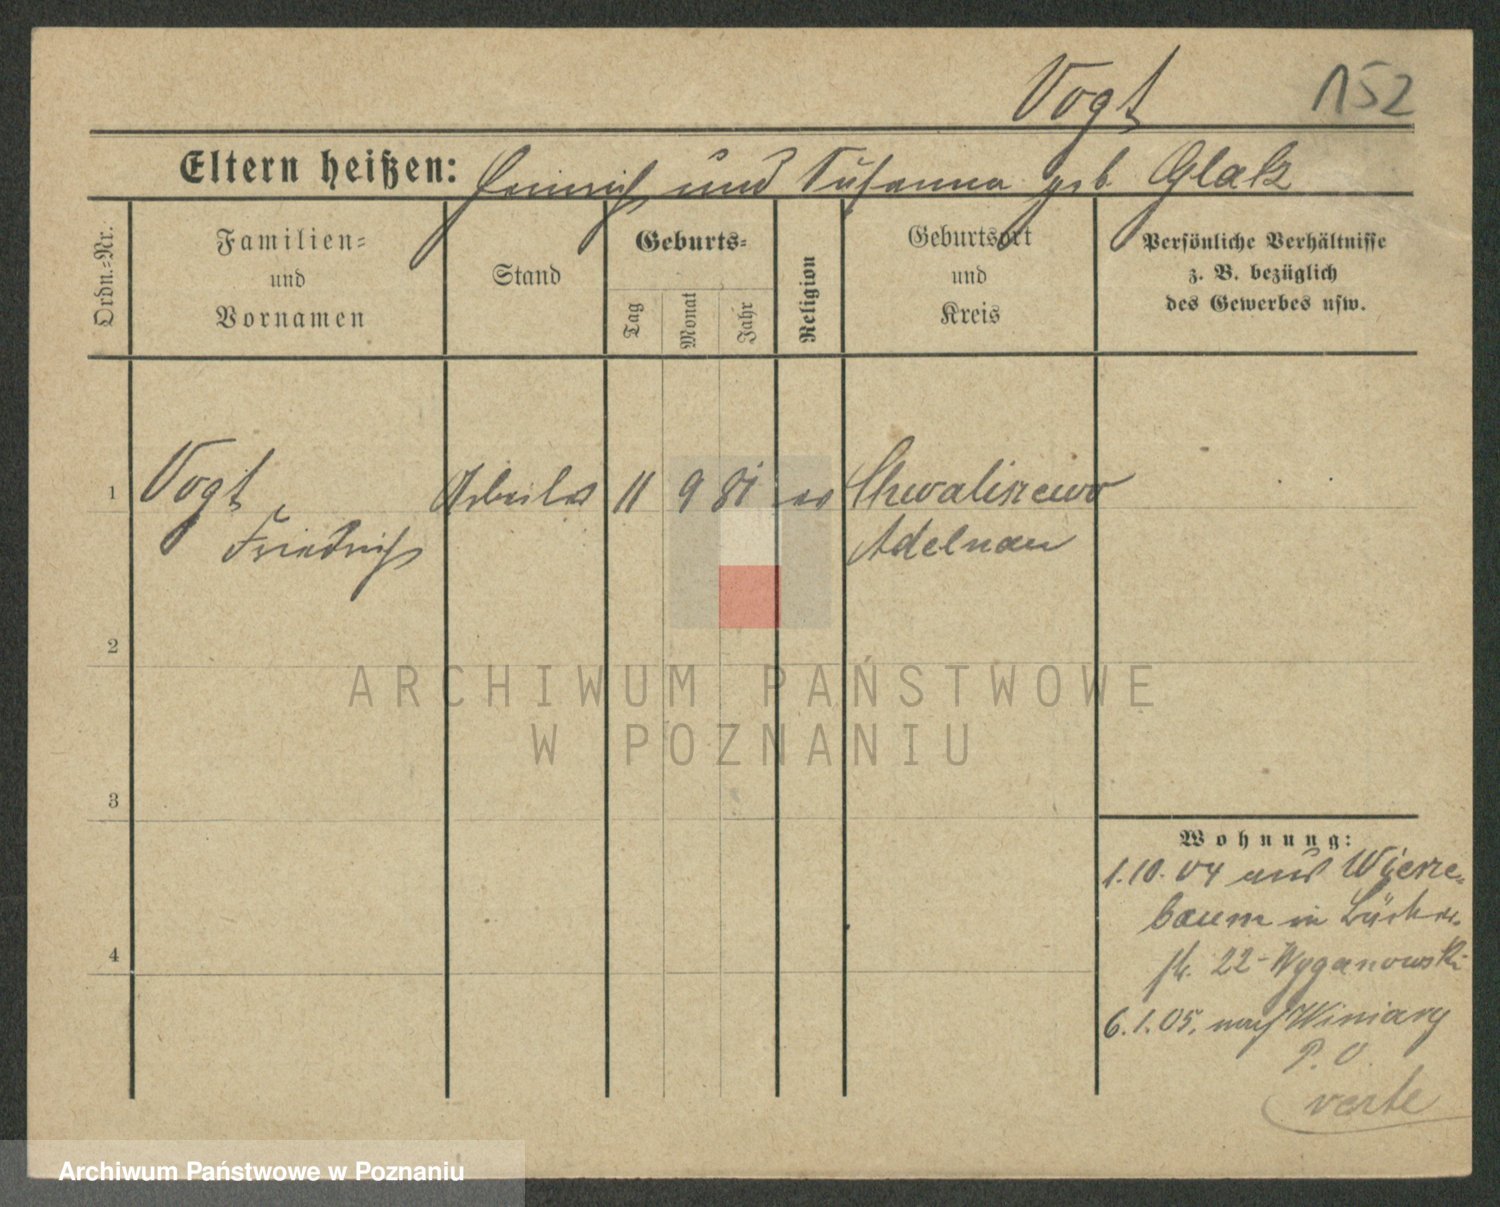 Vogt
152
Eltern heißen: Heinrich und Susanna geb. Glatz
Ordn.-Nr.
Familien-
und
Vornamen
Stand
Geburts-
Tag
Monat
Jahr
Religion
Geburtsort
und
Kreis
Persönliche Verhältnisse
z. B. bezüglich
des Gewerbes usw.
1 Vogt Arbeiter 11 9 81 ev Chwaliszewo
Friedrich Adelnau
2
3
4
Wohnung:
1.10.04 aus Wierze-
baum in Bäcker
str. 22 - Wyganowski
6.1.05. nach Winiary
P. O.
verte
ARCHIWUM PAŃSTWOWE
W POZNANIU
Archiwum Państwowe w Poznaniu